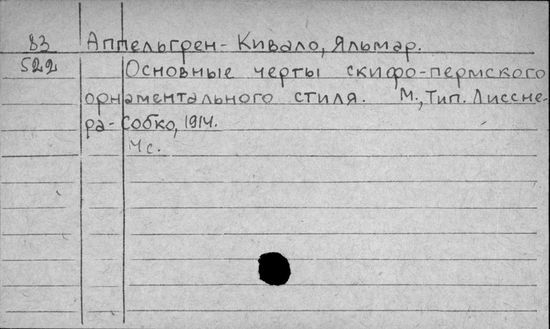 83 Аппельгрен-Кивало, Яльмар.
522 Основные черты скифо-пермского
орнаментального стиля. М., Тип. Лиссне-
ра-Собко, 1914.
4 с.